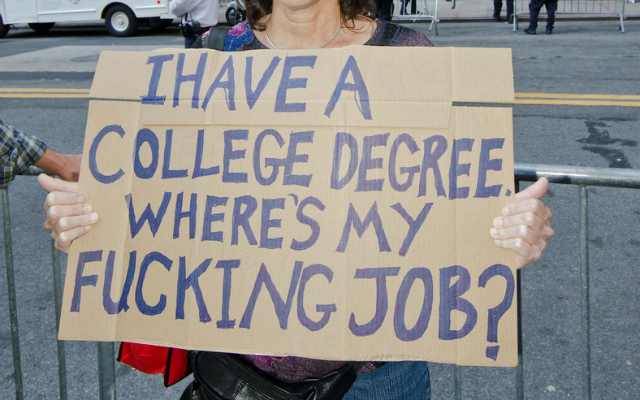 I HAVE A
COLLEGE DEGREE.
WHERE'S MY
FUCKING JOB?